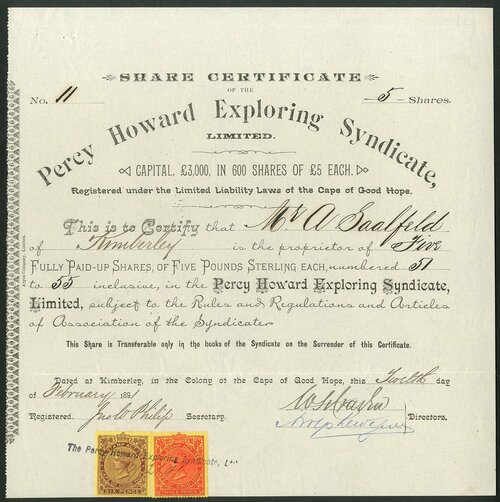 SHARE CERTIFICATE
OF THE
No. 11
5 Shares.
Percy Howard Exploring Syndicate,
LIMITED.
CAPITAL, £3,000, IN 600 SHARES OF £5 EACH.
Registered under the Limited Liability Laws of the Cape of Good Hope.
This is to Certify that Mr A Saalfeld
of Kimberley is the proprietor of Five
FULLY PAID-UP SHARES, OF FIVE POUNDS STERLING EACH, numbered 51
to 55 inclusive, in the Percy Howard Exploring Syndicate,
Limited, subject to the Rules and Regulations and Articles
of Association of the Syndicate.
This Share is Transferable only in the books of the Syndicate on the Surrender of this Certificate.
Dated at Kimberley, in the Colony of the Cape of Good Hope, this Twelfth day
of February 1891
Registered. Jas W Philip Secretary.
Directors.
The Percy Howard Exploring Syndicate, Ld
SIX PENCE
THREE PENCE